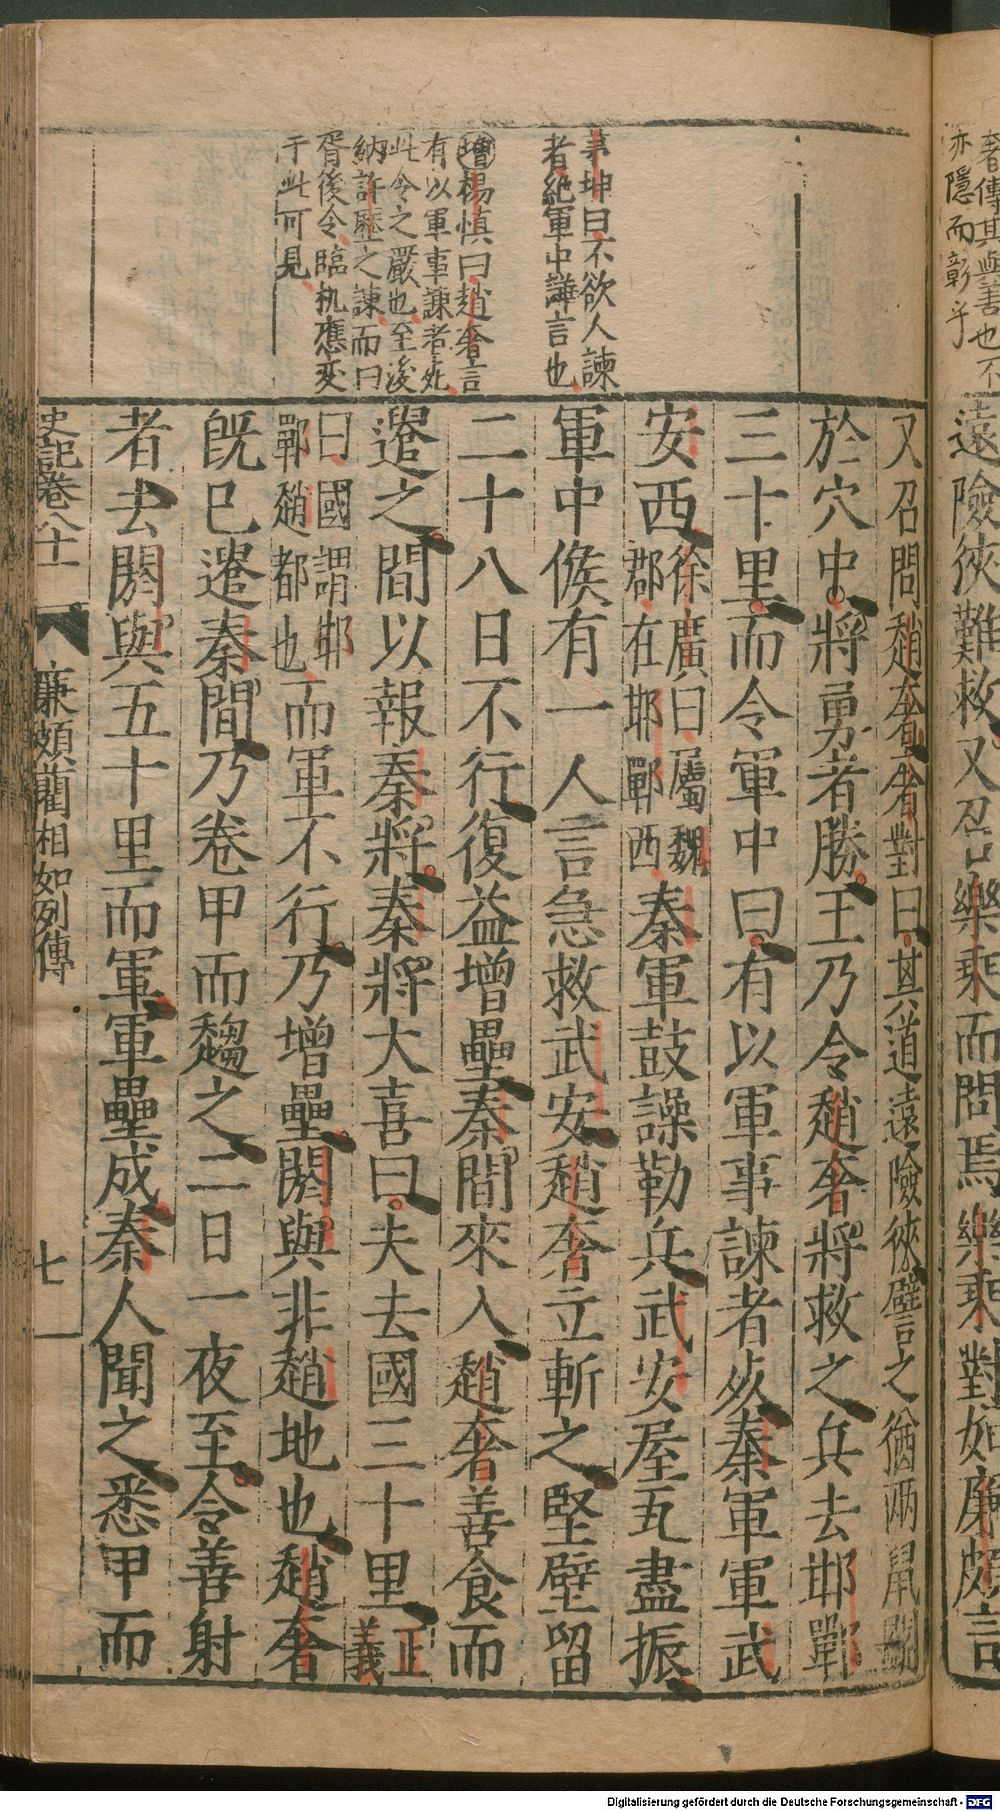 奢傳其與善也不
亦隱而彰乎
遠險狹難救又召樂乘而問焉樂乘對如廉頗言
茅坤曰不欲人諫
者絕軍中譁言也
增楊慎曰趙奢言
有以軍事諫者死
此令之嚴也至後
納許歷之諫而曰
胥後令臨机應変
于此可見
又召問趙奢奢對曰其道遠險狹譬之猶兩鼠鬭
於穴中將勇者勝王乃令趙奢將救之兵去邯鄲
三十里而令軍中曰有以軍事諫者死秦軍軍武
安西徐廣曰屬魏
郡在邯鄲西秦軍鼓譟勒兵武安屋瓦盡振
軍中候有一人言急救武安趙奢立斬之堅壁留
二十八日不行復益增壘秦間來入趙奢善食而
遣之間以報秦將秦將大喜曰夫去國三十里正
義
曰國謂邯
鄲趙都也而軍不行乃增壘閼與非趙地也趙奢
旣已遣秦間乃卷甲而趨之二日一夜至令善射
者去閼與五十里而軍軍壘成秦人聞之悉甲而
史記卷八十一
廉頗藺相如列傳
七
Digitalisierung gefördert durch die Deutsche Forschungsgemeinschaft - DFG